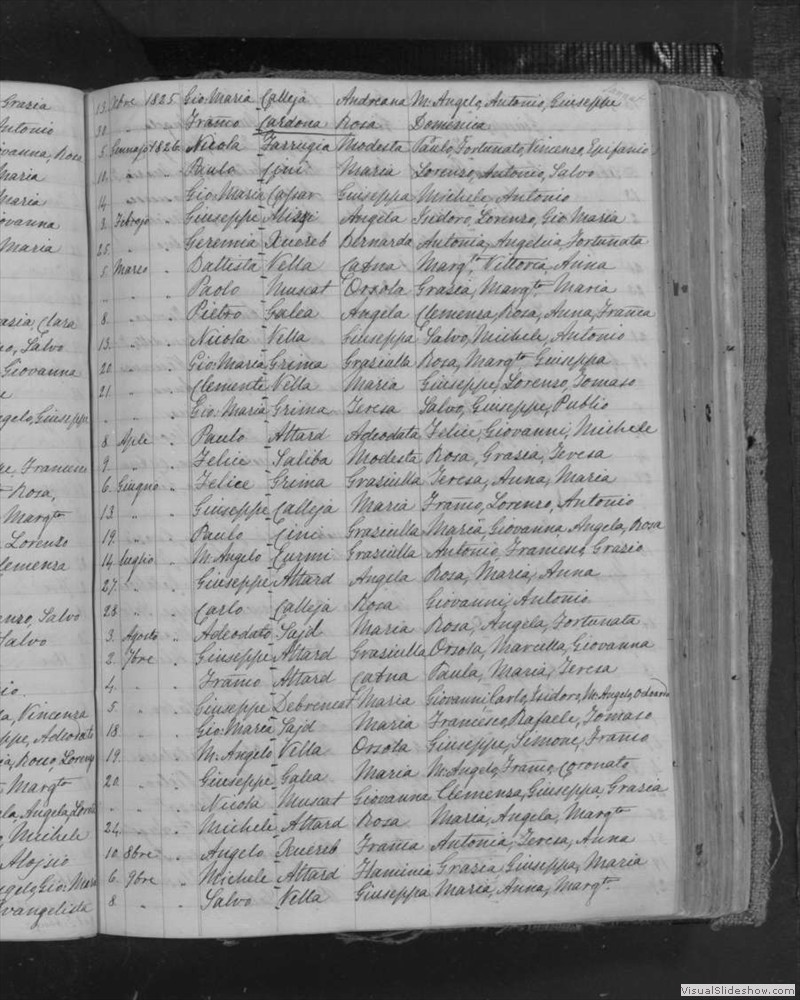 Grazia
Antonio
Giovanna, Rosa
Maria
Maria
Giovanna
Maria
Clara
Salvo
Giovanna
Angelo, Giuseppe
Rosa,
Margta
Lorenzo
Clemenza
Salvo
Salvo
Vincenza
Adeodato
Rocco, Loren
Margta
Angela,
Michele
Aloisio
Angelo, Gio: Mara
Evangelista
13 Xbre 1825 Gio: Maria Calleja Andreana M. Angelo, Antonio, Giuseppe
30 " " Franco Cardona Rosa Dominica
5 Gennajo 1826 Nicola Farrugia Modesta Paulo, Fortunato, Vincenzo, Epifanio
10 " " Paulo Cini Maria Lorenzo, Antonio, Salvo
14 " " Gio: Maria Giuseppa Michele, Antonio
3 Febrajo " Giuseppe Angela Isidoro, Lorenzo, Gio Maria
25 " " Geremia Xuereb Bernarda Antonia, Angelica, Fortunata
5 Marzo " Battista Vella Catna Margta, Vittoria, Anna
" " " Paolo Muscat Orsola Grazia, Margta, Maria
8 " " Pietro Galea Angela Clemenza, Rosa, Anna, Franca
13 " " Nicola Vella Giuseppa Salvo, Michele, Antonio
20 " " Gio: Maria Grima Graziulla Rosa, Margta, Giuseppa
21 " " Clemente Vella Maria Giuseppe, Lorenzo, Tomaso
" " " Gio: Maria Grima Teresa Salvo, Giuseppe, Publio
8 Aple " Paulo Attard Adeodata Felice, Giovanni, Michele
9 " " Felice Saliba Modesta Rosa, Grazia, Teresa
6 Giugno " Felice Grima Graziulla Teresa, Anna, Maria
13 " " Giuseppe Calleja Maria Franco, Lorenzo, Antonio
19 " " Paulo Cini Graziulla Maria, Giovanna, Angela, Rosa
14 Luglio " M. Angelo Curmi Graziulla Antonio, Francesco, Grazio
27 " " Giuseppe Attard Angela Rosa, Maria, Anna
28 " " Carlo Calleja Rosa Giovanni, Antonio
3 Agosto " Adeodato Sajd Maria Rosa, Angela, Fortunata
2 7bre " Giuseppe Attard Graziulla Orsola, Marcella, Giovanna
4 " " Franco Attard Catna Paula, Maria, Teresa
5 " " Giuseppe Debrincat Maria Giovanni, Carlo, Isidoro, M. Angelo,
18 " " Gio: Maria Sajd Maria Francesco, Rafaele, Tomaso
19 " " M. Angelo Vella Orsola Giuseppe, Simone, Franco
20 " " Giuseppe Galea Maria M. Angelo, Franco, Coronato
" " " Nicola Muscat Giovanna Clemenza, Giuseppa, Grazia
24 " " Michele Attard Rosa Maria, Angela, Margta
10 8bre " Angelo Xuereb Franca Antonia, Teresa, Anna
6 9bre " Michele Attard Flaminia Grazia, Giuseppa, Maria
8 " " Salvo Vella Giuseppa Maria, Anna, Margta
VisualSlideshow.com